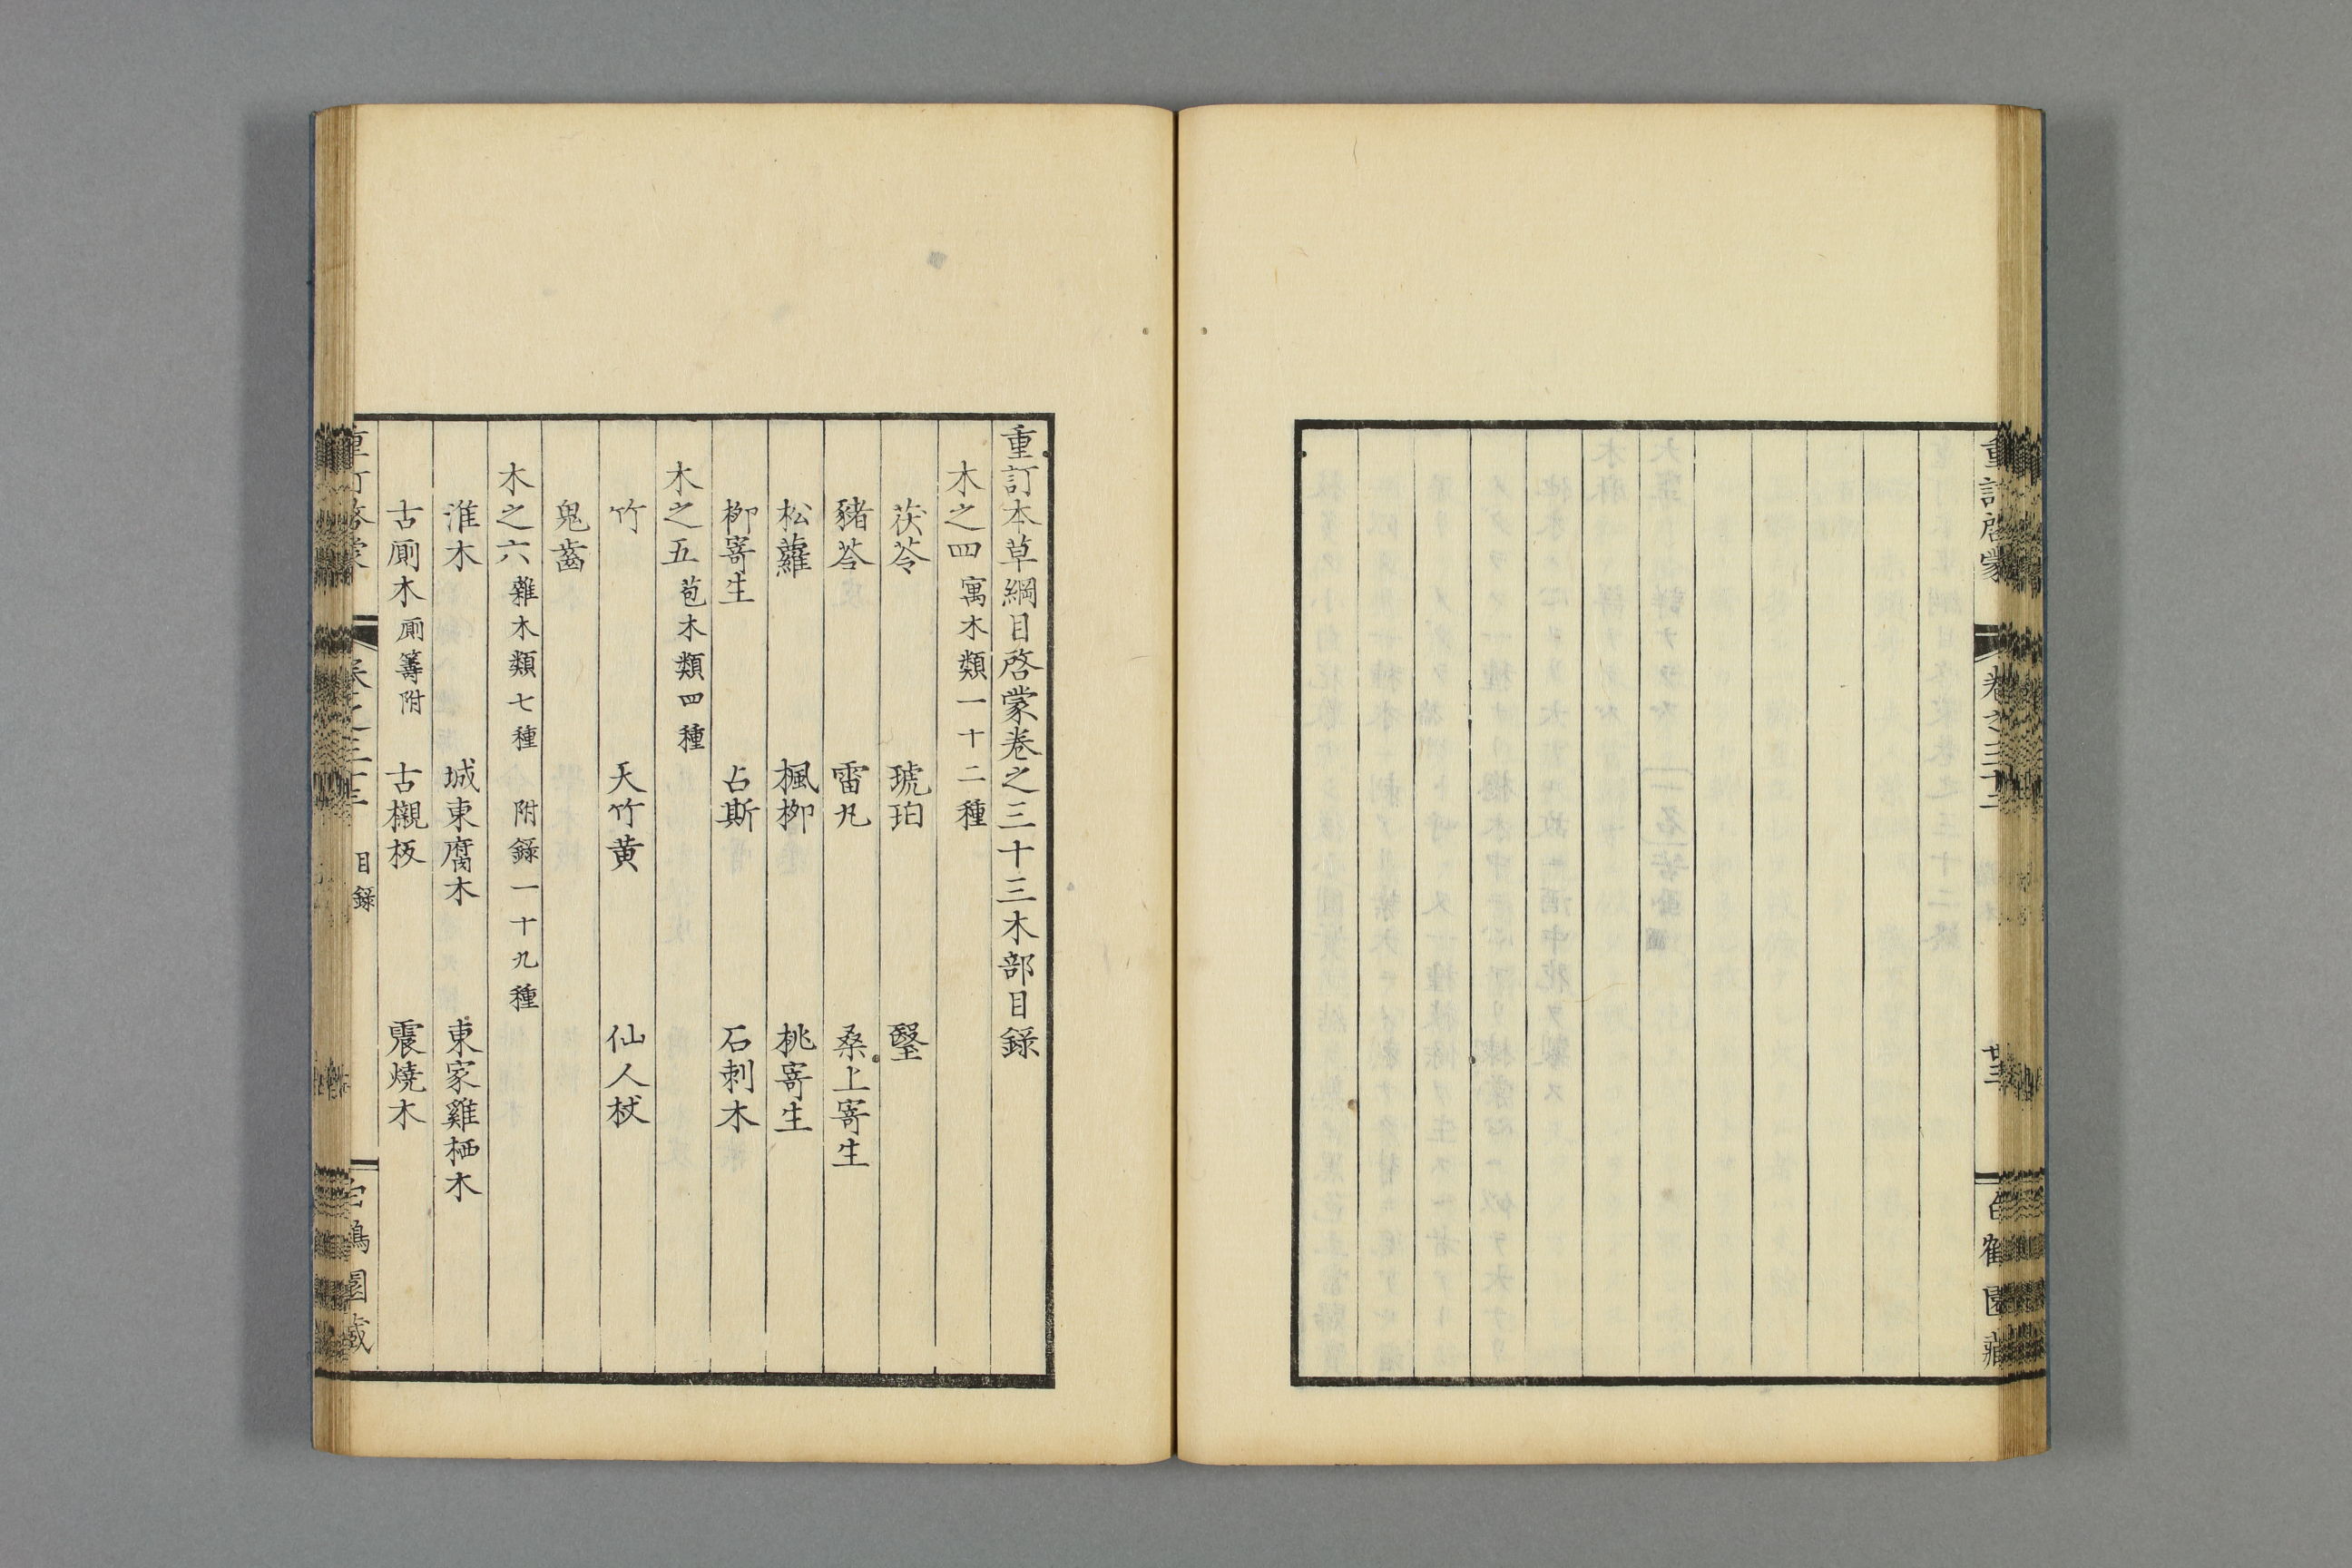 重訂啓蒙 卷之三十二 廿三
重訂本草綱目啓蒙卷之三十三木部目錄
木之四 寓木類一十二種
茯苓 琥珀 瑿
豬苓 雷丸 桑上寄生
松蘿 楓柳 桃寄生
柳寄生 占斯 石刺木
木之五 苞木類四種
竹 天竹黄 仙人杖
鬼齒
木之六 雜木類七種 附錄一十九種
淮木 城東腐木 東家雞栖木
古廁木 廁籌附 古櫬板 震燒木
目錄